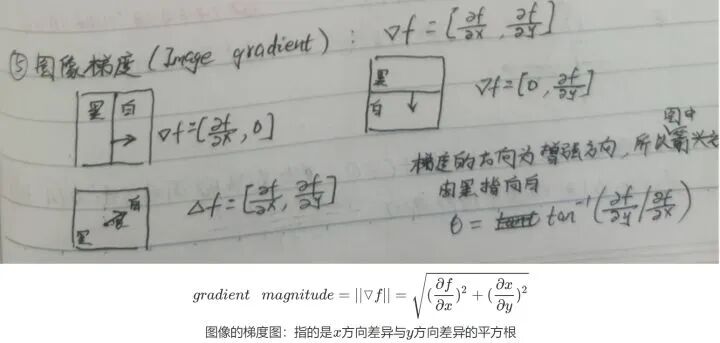 ⑤图像梯度 (Image gradient) : ▽f = [∂f/∂x , ∂f/∂y]
黑 白 ▽f=[∂f/∂x, 0]
黑 白 ▽f=[0, ∂f/∂y]
黑 白 Δf = [∂f/∂x, ∂f/∂y]
梯度的方向为增强方向, 所以图中箭头
由黑指向白
θ = tan⁻¹(∂f/∂y / ∂f/∂x)
gradient magnitude = ||▽f|| = √((∂f/∂x)² + (∂x/∂y)²)
图像的梯度图：指的是x方向差异与y方向差异的平方根